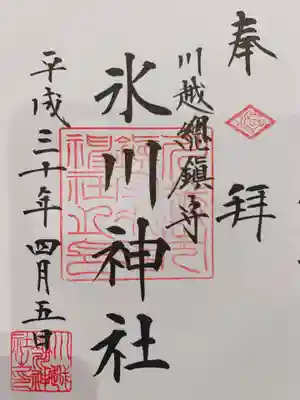 奉拝
川越總鎮守
氷川神社
平成三十年四月五日